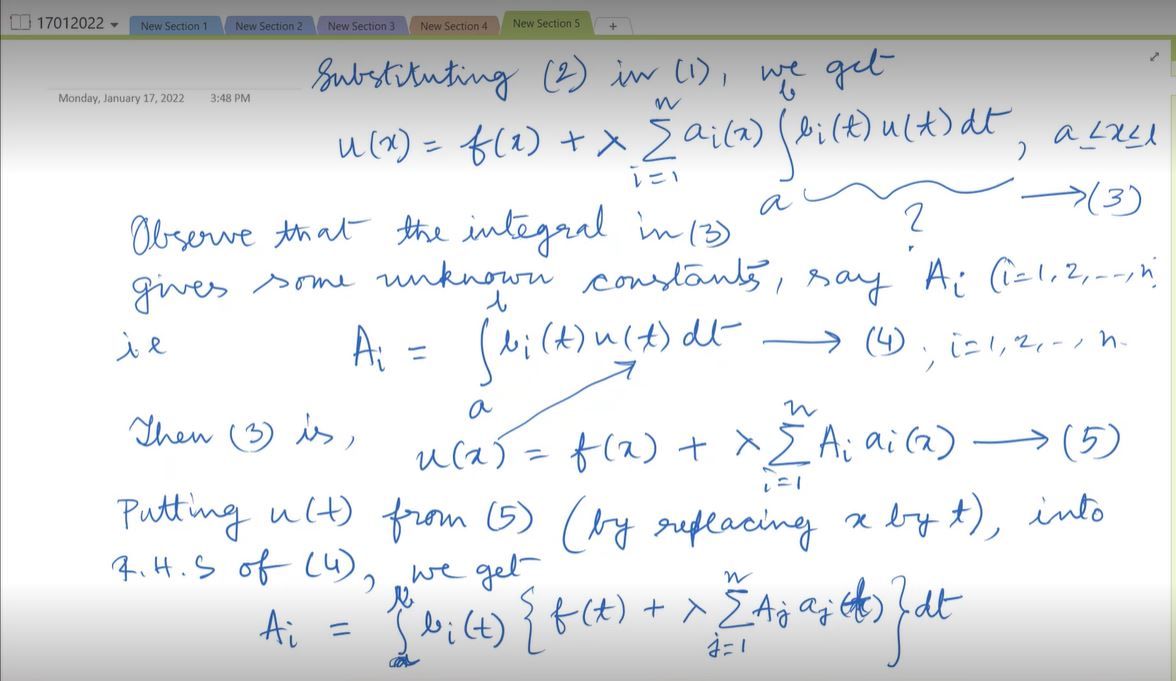 17012022 New Section 1 New Section 2 New Section 3 New Section 4 New Section 5 +
Substituting (2) in (1), we get
Monday, January 17, 2022 3:48 PM
u(x) = f(x) + λ ∑_{i=1}^{n} a_i(x) ∫_a^b b_i(t) u(t) dt, a≤x≤b
→(3)
?
Observe that the integral in (3)
gives some unknown constants, say A_i (i=1,2,--,n)
i.e A_i = ∫_a^b b_i(t) u(t) dt → (4), i=1,2,-, n.
Then (3) is, u(x) = f(x) + λ ∑_{i=1}^{n} A_i a_i(x) → (5)
Putting u(t) from (5) (by replacing x by t), into
R.H.S of (4), we get
A_i = ∫_a^b b_i(t) { f(t) + λ ∑_{j=1}^{n} A_j a_j(t) } dt